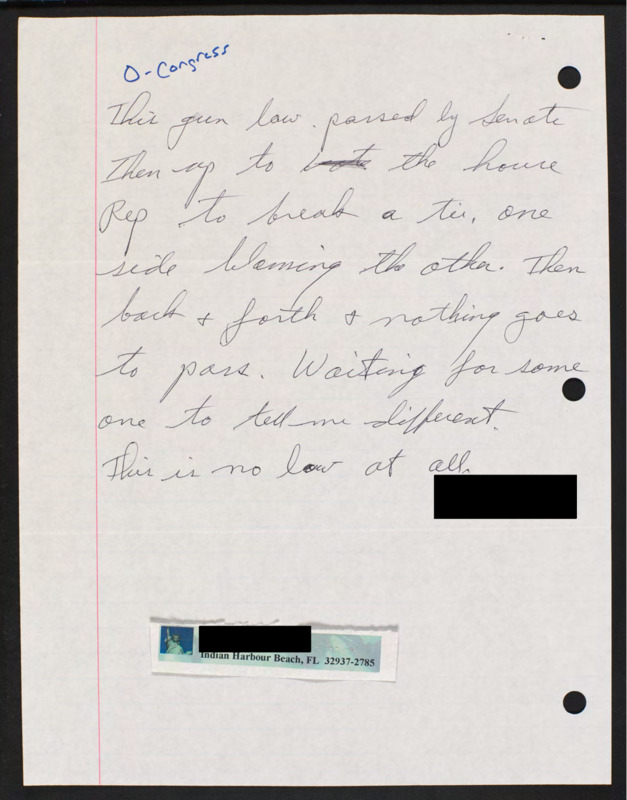 O-Congress
This gun law. passed by Senate
Then up to the house
Rep to break a tie, one
side blaming the other. Then
back & forth & nothing goes
to pass. Waiting for some
one to tell me different.
This is no law at all.
Indian Harbour Beach, FL 32937-2785